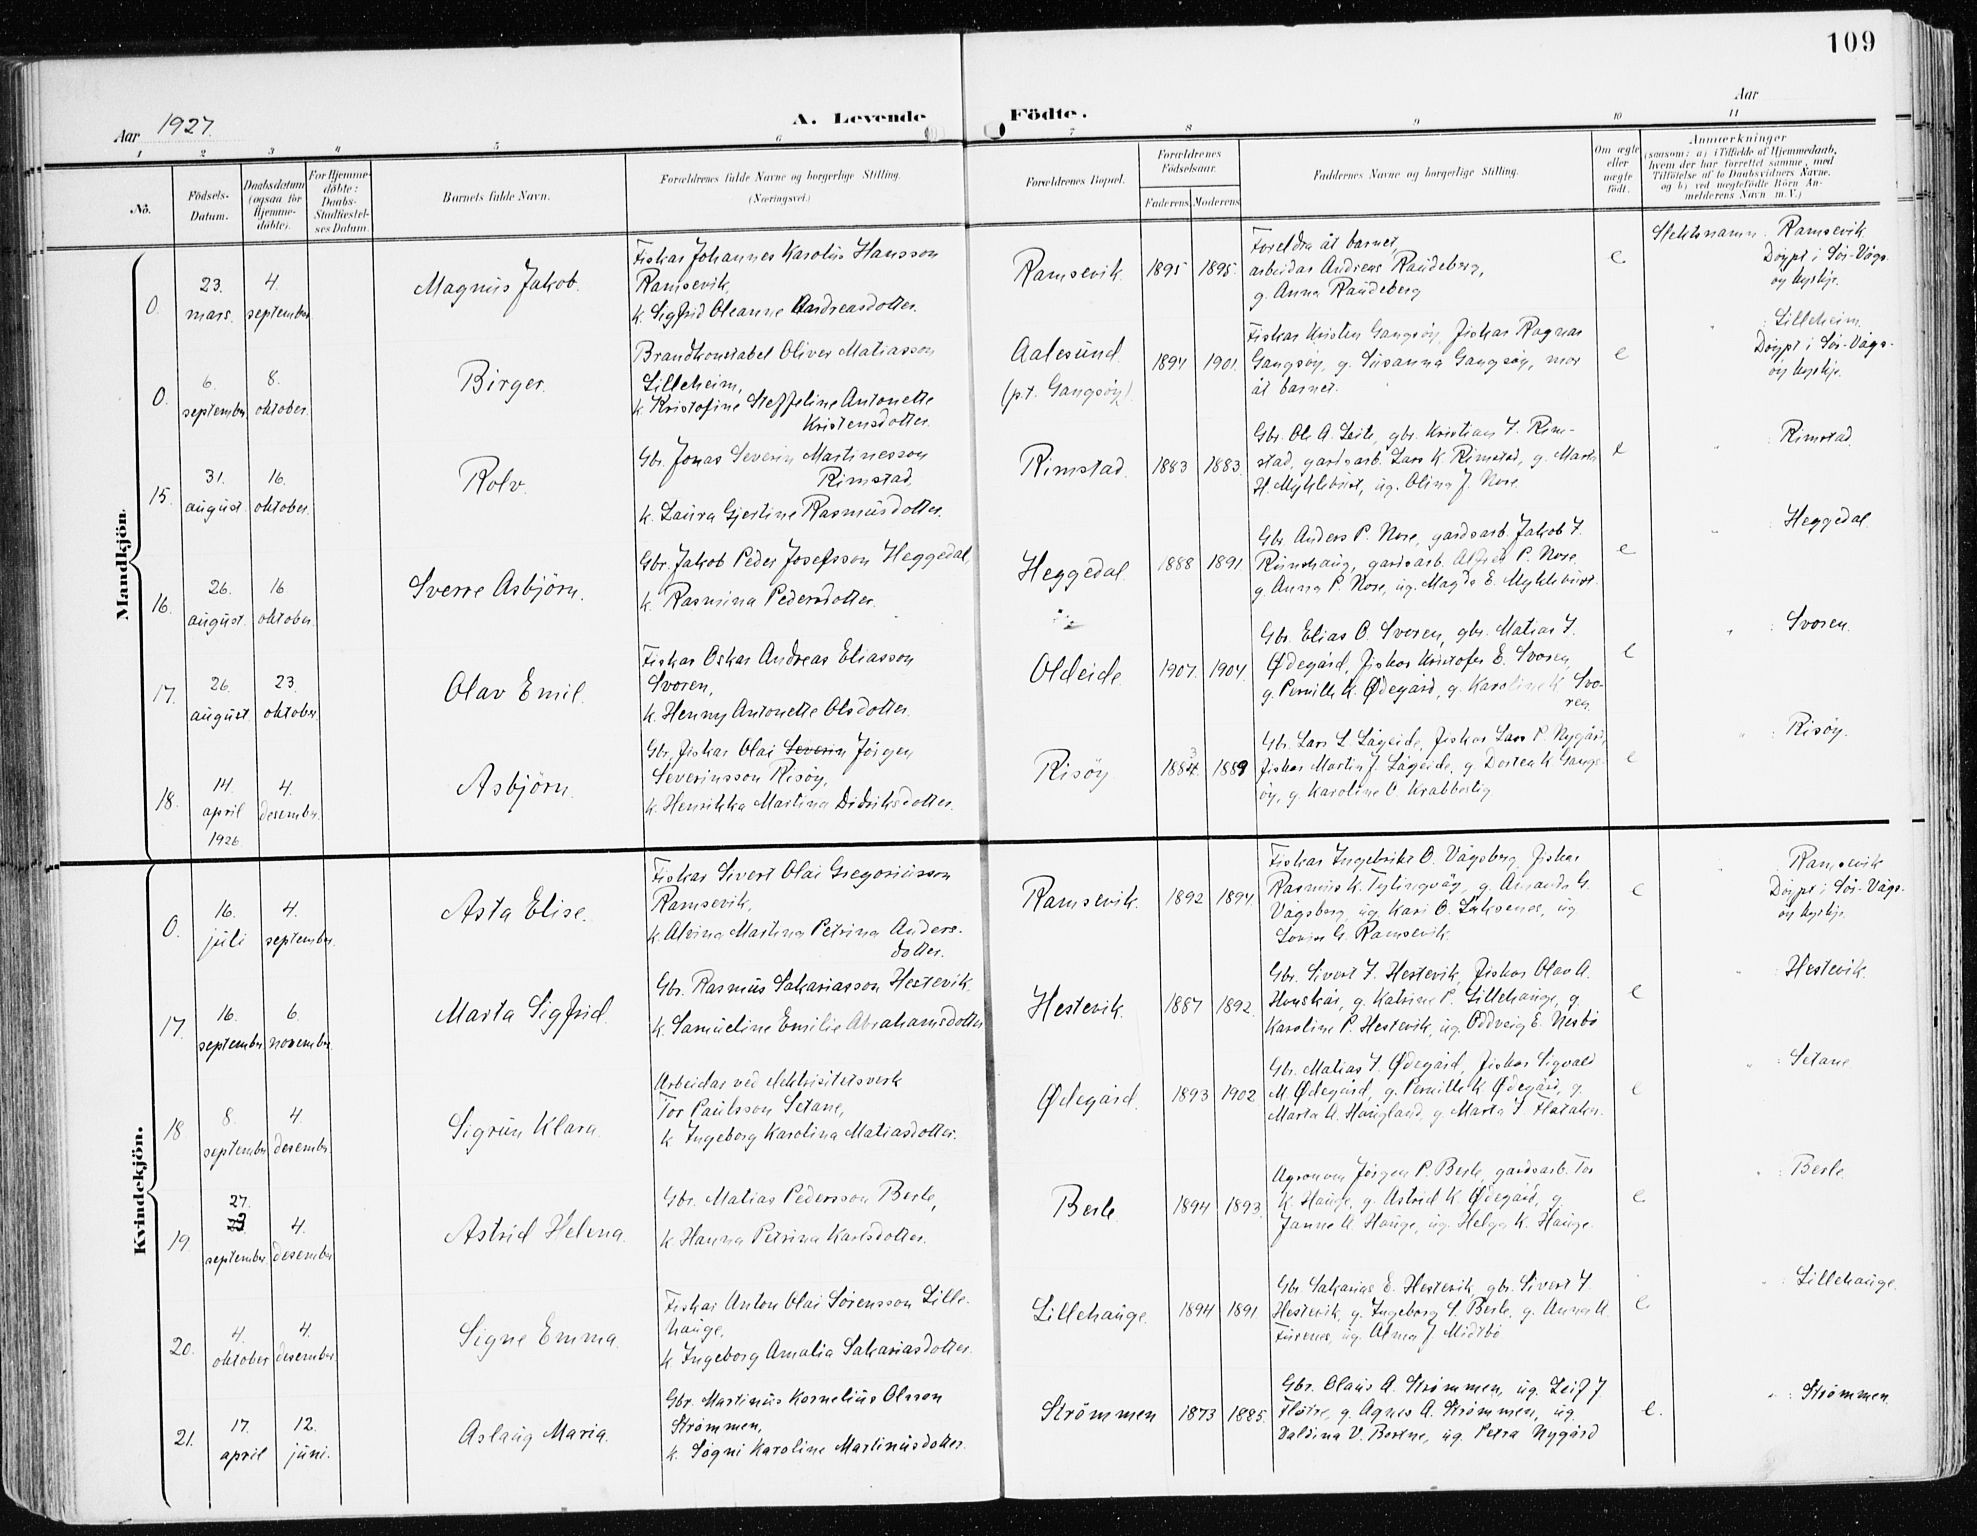 109
Aar 1927.
A. Levende Födte.
Aar
1 2 3 4 5 6 7 8 9 10 11
No.
Födsels-Datum.
Daabsdatum (ogsaa for Hjemmedöbte).
For Hjemmedöbte: Daabs-Stadfæstelses Datum.
Barnets fulde Navn.
Forældrenes fulde Navne og borgerlige Stilling. (Næringsvei.)
Forældrenes Bopæl.
Forældrenes Födselsaar.
Faderens. Moderens.
Faddernes Navne og borgerlige Stilling.
Om ægte eller uægte födt.
Anmærkninger
(saasom: a) i Tilfælde af Hjemmedaab, hvem der har forrettet samme, med Tilföielse af to Daabsvidners Navne. og b) ved uægtefödte Börn Anmelderens Navn m.V.)
Mandkjön.
0.
23. mars.
4. september
Magnus Jakob.
Fiskar Johannes Karolus Hansson
Ramsevik,
k. Sigfrid Oleanne Andreasdotter.
Ramsevik.
1895 1895.
Foreldra åt barnet,
arbeidar Andreas Raudeberg,
g. Anna Raudeberg
e
Slektsnamn: Ramsevik
Døypt i Sør-Vågs-
øy kyrkje.
0.
6. september
8. oktober.
Birger.
Brandkonstabel Oliver Matiasson
Lilleheim,
k. Kristofine Steffeline Antonette
Kristensdotter.
Aalesund.
(p.t. Gangsøy).
1894 1901.
Fiskar Kristen Gangsøy, fiskar Ragnar
Gangsøy, g. Susanna Gangsøy, mor
åt barnet.
e
" : Lilleheim.
Døypt i Sør-Vågs-
øy kyrkje.
15.
31. august.
16. oktober.
Rolv.
Gbr. Jonas Severin Martinesson
Rimstad,
k. Laura Gjertine Rasmusdotter.
Rimstad.
1883 1883.
Gbr. Ole A. Leite, gbr. Kristian J. Rim-
stad, gardsarb. Lars K. Rimstad, g. Marta
H. Myklebust, ug. Olina J. Nore
e
" : Rimstad.
16.
26. august.
16 oktober.
Sverre Asbjörn.
Gbr. Jakob Peder Josefsson Heggedal,
k. Rasmina Pedersdotter.
Heggedal.
1888 1891
Gbr. Anders P. Nore, gardsarb. Jakob J.
Rimshaug, gardsarb. Alfred P. Nore,
g. Anna P. Nore, ug. Magda E. Myklebust.
e
" : Heggedal.
17.
26. august.
23. oktober.
Olav Emil.
Fiskar Oskar Andreas Eliasson
Svoren,
k. Henny Antonette Olsdotter.
Oldeide.
1907. 1904.
Gbr. Elias O. Svoren, gbr. Matias J.
Ødegård, fiskar Kristofer E. Svoren,
g. Pernille K. Ødegård, g. Karoline K. Svo-
ren.
e
" : Svoren.
18.
14. april 1926
4. desember.
Asbjörn.
Gbr, fiskar Olai Severin Jörgen
Severinsson Risöy,
k. Henrikka Martina Didriksdotter.
Risöy
1884 3 1889
Gbr. Lars L. Lågeide, fiskar Lars P. Nygård,
fiskar Martin J. Lågeide, g. Dortea K. Gangs-
öy, g. Karoline O. Krabbestig
e
" : Risöy.
Kvindekjön.
0.
16. juli
4. september.
Asta Elise.
Fiskar Sivert Olai Gregoriusson
Ramsevik,
k. Alvina Martina Petrina Anders-
dotter.
Ramsevik.
1892 1894.
Fiskar Ingebrikt O. Vågsberg, fiskar
Rasmus K. Tytingvåg, g. Amanda G.
Vågsberg, ug. Kari O. Laksenes, ug.
Lovise G. Ramsevik.
e
" Ramsevik
Døypt i Sør-Vågs-
øy kyrkje.
17.
16. september
6. november.
Marta Sigfrid.
Gbr. Rasmus Sakariasson Hestevik.
k. Samueline Emilie Abrahamsdotter
Hestevik.
1887 1892.
Gbr. Sivert J. Hestevik, fiskar Olav A.
Hovskår, g. Katrine P. Lillehauge, g.
Karoline P. Hestevik, ug. Oddveig E. Nesbø
e
" : Hestevik.
18
8. september
4. desember.
Sigrun Klara.
Arbeidar ved elektrisitetsverk
Tor Paulsson Setane,
k. Ingeborg Karolina Matiasdotter.
Ødegård.
1893 1902
Gbr. Matias J. Ødegård, fiskar Sigvald
M. Ødegård, g. Pernille K. Ødegård, g.
Marta A. Haugland, g. Marta J. Flataker.
e
" : Setane
19
27. september
4. desember.
Astrid Helena.
Gbr. Matias Pedersson Berle,
k. Hanna Petrina Karlsdotter.
Berle
1894 1893.
Agronom Jörgen P. Berle, gardsarb. Tor
K. Hauge, g. Astrid K. Ødegård, g.
Janne A. Hauge, ug. Helga K. Hauge.
e
" : Berle.
20.
4. oktober
4. desember.
Signe Emma.
Fiskar Anton Olai Sörensson Lille-
hauge,
k. Ingeborg Amalia Sakariasdotter.
Lillehauge.
1894 1891.
Gbr. Sakarias E. Hestevik, gbr. Sivert J.
Hestevik, g. Ingeborg S. Berle, g. Anna A.
Furenes, ug. Alma J. Midtbö
e
" : Lillehauge.
21.
17. april
12. juni.
Aslaug Maria.
Gbr. Martinus Kornelius Olsson
Strömmen,
k. Søgni Karoline Martinusdotter.
Strömmen
1873 1885.
Gbr. Olaus A. Strömmen, ug. Leif J.
Flötre, g. Agnes A. Strömmen, ug.
Valdina V. Bortne, ug. Petra Nygård
e.
" : Strömmen